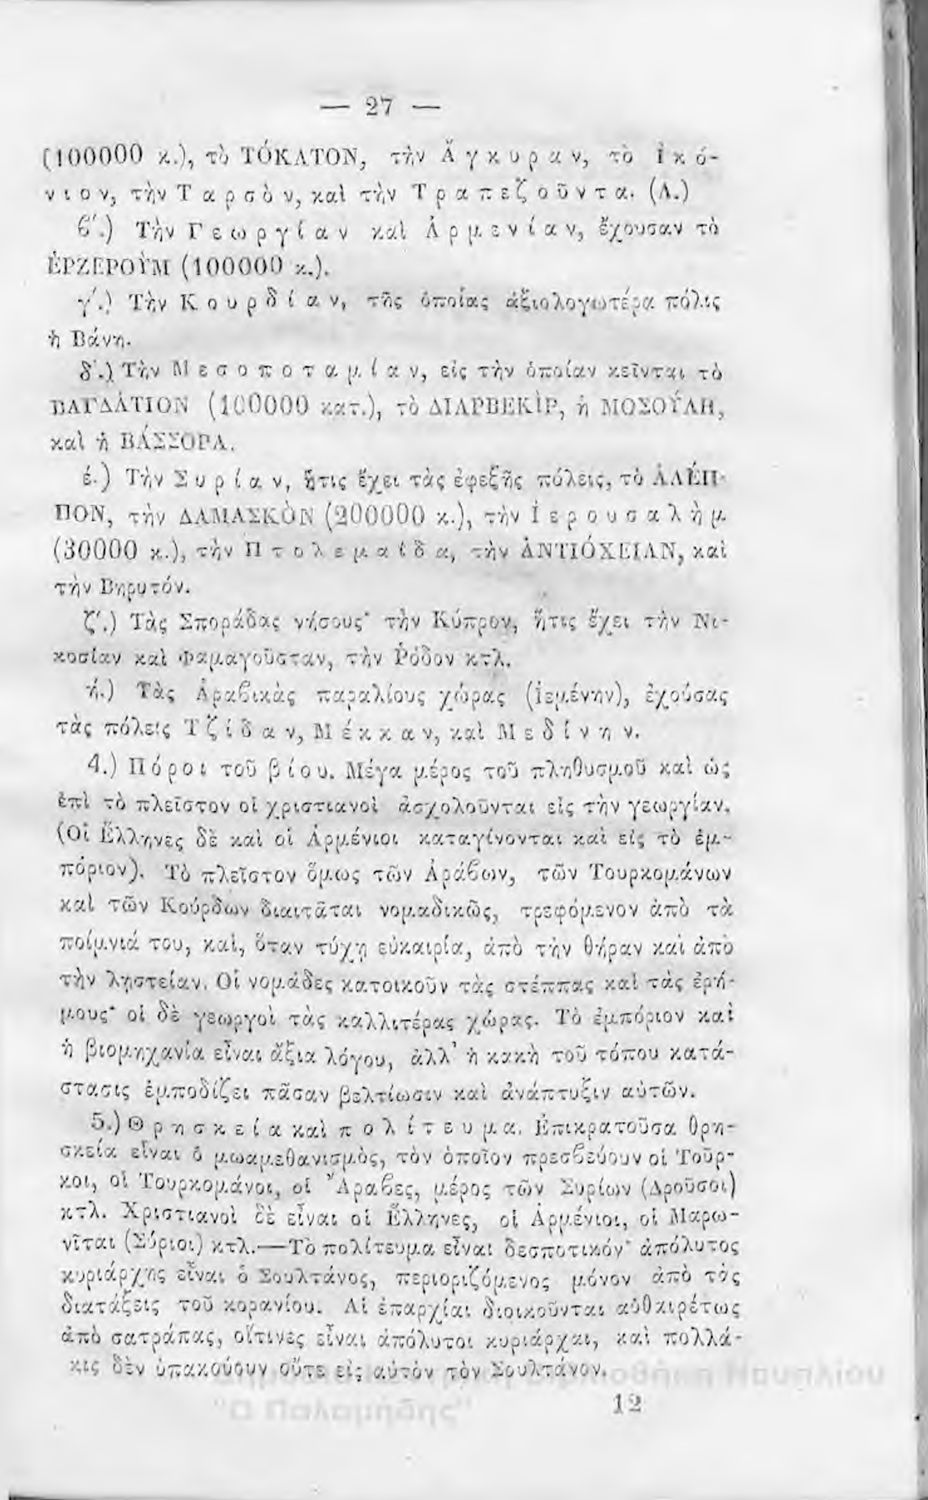 — 27 —
(100000 κ.), τὸ ΤΟΚΑΤΟΝ, τὴν Ἄγκυραν, τὸ Ἰκό-
νιον, τὴν Ταρσὸν, καὶ τὴν Τραπεζοῦντα. (Λ.)
ϐ′.) Τὴν Γεωργίαν καὶ Ἀρμενίαν, ἔχουσαν τὸ
ἘΡΖΕΡΟῪΜ (100000 κ.).
γ′.) Τὴν Κουρδίαν, τῆς ὁποίας ἀξιολογωτέρα πόλις
ἡ Βάνη.
δ′.) Τὴν Μεσοποταμίαν, εἰς τὴν ὁποίαν κεῖνται τὸ
ΒΑΓΔΆΤΙΟΝ (100000 κατ.), τὸ ΔΙΑΡΒΕΚῚΡ, ἡ ΜΟΣΟΎΛΗ,
καὶ ἡ ΒΆΣΣΟΡΑ.
έ.) Τὴν Συρίαν, ἥτις ἔχει τὰς ἐφεξῆς πόλεις, τὸ ἈΛΈΠ-
ΠΟΝ, τὴν ΔΑΜΑΣΚῸΝ (200000 κ.), τὴν Ἱερουσαλὴμ
(30000 κ.), τὴν Πτολεμαΐδα, τὴν ἈΝΤΙΌΧΕΙΑΝ, καὶ
τὴν Βηρυτόν.
ζ′.) Τὰς Σποράδας νήσους· τὴν Κύπρον, ἥτις ἔχει τὴν Νι-
κοσίαν καὶ Φαμαγοῦσταν, τὴν Ῥόδον κτλ.
ή.) Τὰς Ἀραϐικὰς παραλίους χώρας (Ἰεμένην), ἐχούσας
τὰς πόλεις Τζίδαν, Μέκκαν, καὶ Μεδίνην.
4.) Πόροι τοῦ βίου. Μέγα μέρος τοῦ πληθυσμοῦ καὶ ὡς
ἐπὶ τὸ πλεῖστον οἱ χριστιανοὶ ἀσχολοῦνται εἰς τὴν γεωργίαν.
(Οἱ Ἕλληνες δὲ καὶ οἱ Ἀρμένιοι καταγίνονται καὶ εἰς τὸ ἐμ-
πόριον). Τὸ πλεῖστον ὅμως τῶν Ἀράϐων, τῶν Τουρκομάνων
καὶ τῶν Κούρδων διαιτᾶται νομαδικῶς, τρεφόμενον ἀπὸ τὰ
ποίμνιά του, καὶ, ὅταν τύχῃ εὐκαιρία, ἀπὸ τὴν θήραν καὶ ἀπὸ
τὴν λῃστείαν. Οἱ νομάδες κατοικοῦν τὰς στέππας καὶ τὰς ἐρή-
μους· οἱ δὲ γεωργοὶ τὰς καλλιτέρας χώρας. Τὸ ἐμπόριον καὶ
ἡ βιομηχανία εἶναι ἄξια λόγου, ἀλλ’ ἡ κακὴ τοῦ τόπου κατά-
στασις ἐμποδίζει πᾶσαν βελτίωσιν καὶ ἀνάπτυξιν αὐτῶν.
5.) Θρησκεία καὶ πολίτευμα. Ἐπικρατοῦσα θρη-
σκεία εἶναι ὁ μωαμεθανισμὸς, τὸν ὁποῖον πρεσϐεύουν οἱ Τοῦρ-
κοι, οἱ Τουρκομάνοι, οἱ Ἄραϐες, μέρος τῶν Συρίων (Δροῦσοι)
κτλ. Χριστιανοὶ δὲ εἶναι οἱ Ἕλληνες, οἱ Ἀρμένιοι, οἱ Μαρω-
νῖται (Σύριοι) κτλ.—Τὸ πολίτευμα εἶναι δεσποτικόν· ἀπόλυτος
κυριάρχης εἶναι ὁ Σουλτάνος, περιοριζόμενος μόνον ἀπὸ τὰς
διατάξεις τοῦ κορανίου. Αἱ ἐπαρχίαι διοικοῦνται αὐθαιρέτως
ἀπὸ σατράπας, οἵτινες εἶναι ἀπόλυτοι κυριάρχαι, καὶ πολλά-
κις δὲν ὑπακούουν οὔτε εἰς αὐτὸν τὸν Σουλτάνον.
12
Βιβλιοθήκη Ναυπλίου
"Ο Παλαμήδης"